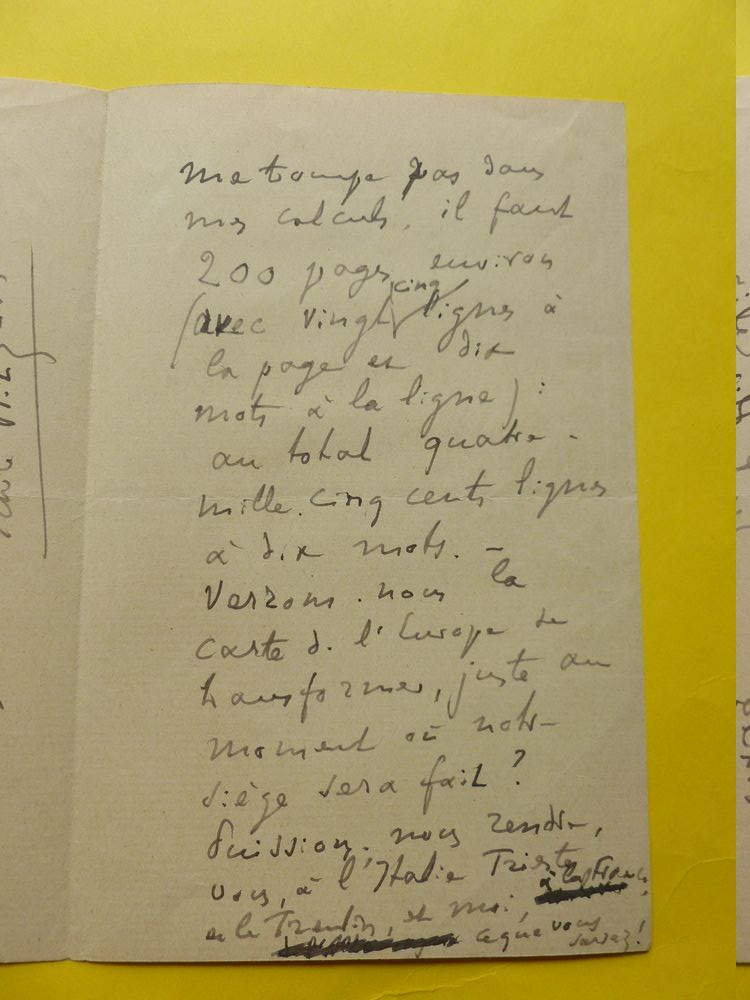 me trompe pas dans
mes calculs, il faut
200 pages environ
(avec vingt cinq lignes à
la page et dix
mots à la ligne) :
au total quatre-
mille cinq cents lignes
à dix mots. -
Verrons-nous la
carte de l'Europe se
transformer, juste au
moment où notre
siège sera fait ?
Puissions-nous rendre,
vous, à l'Italie Trieste
et le Trentin, et moi, à la France,
ce que vous
savez !